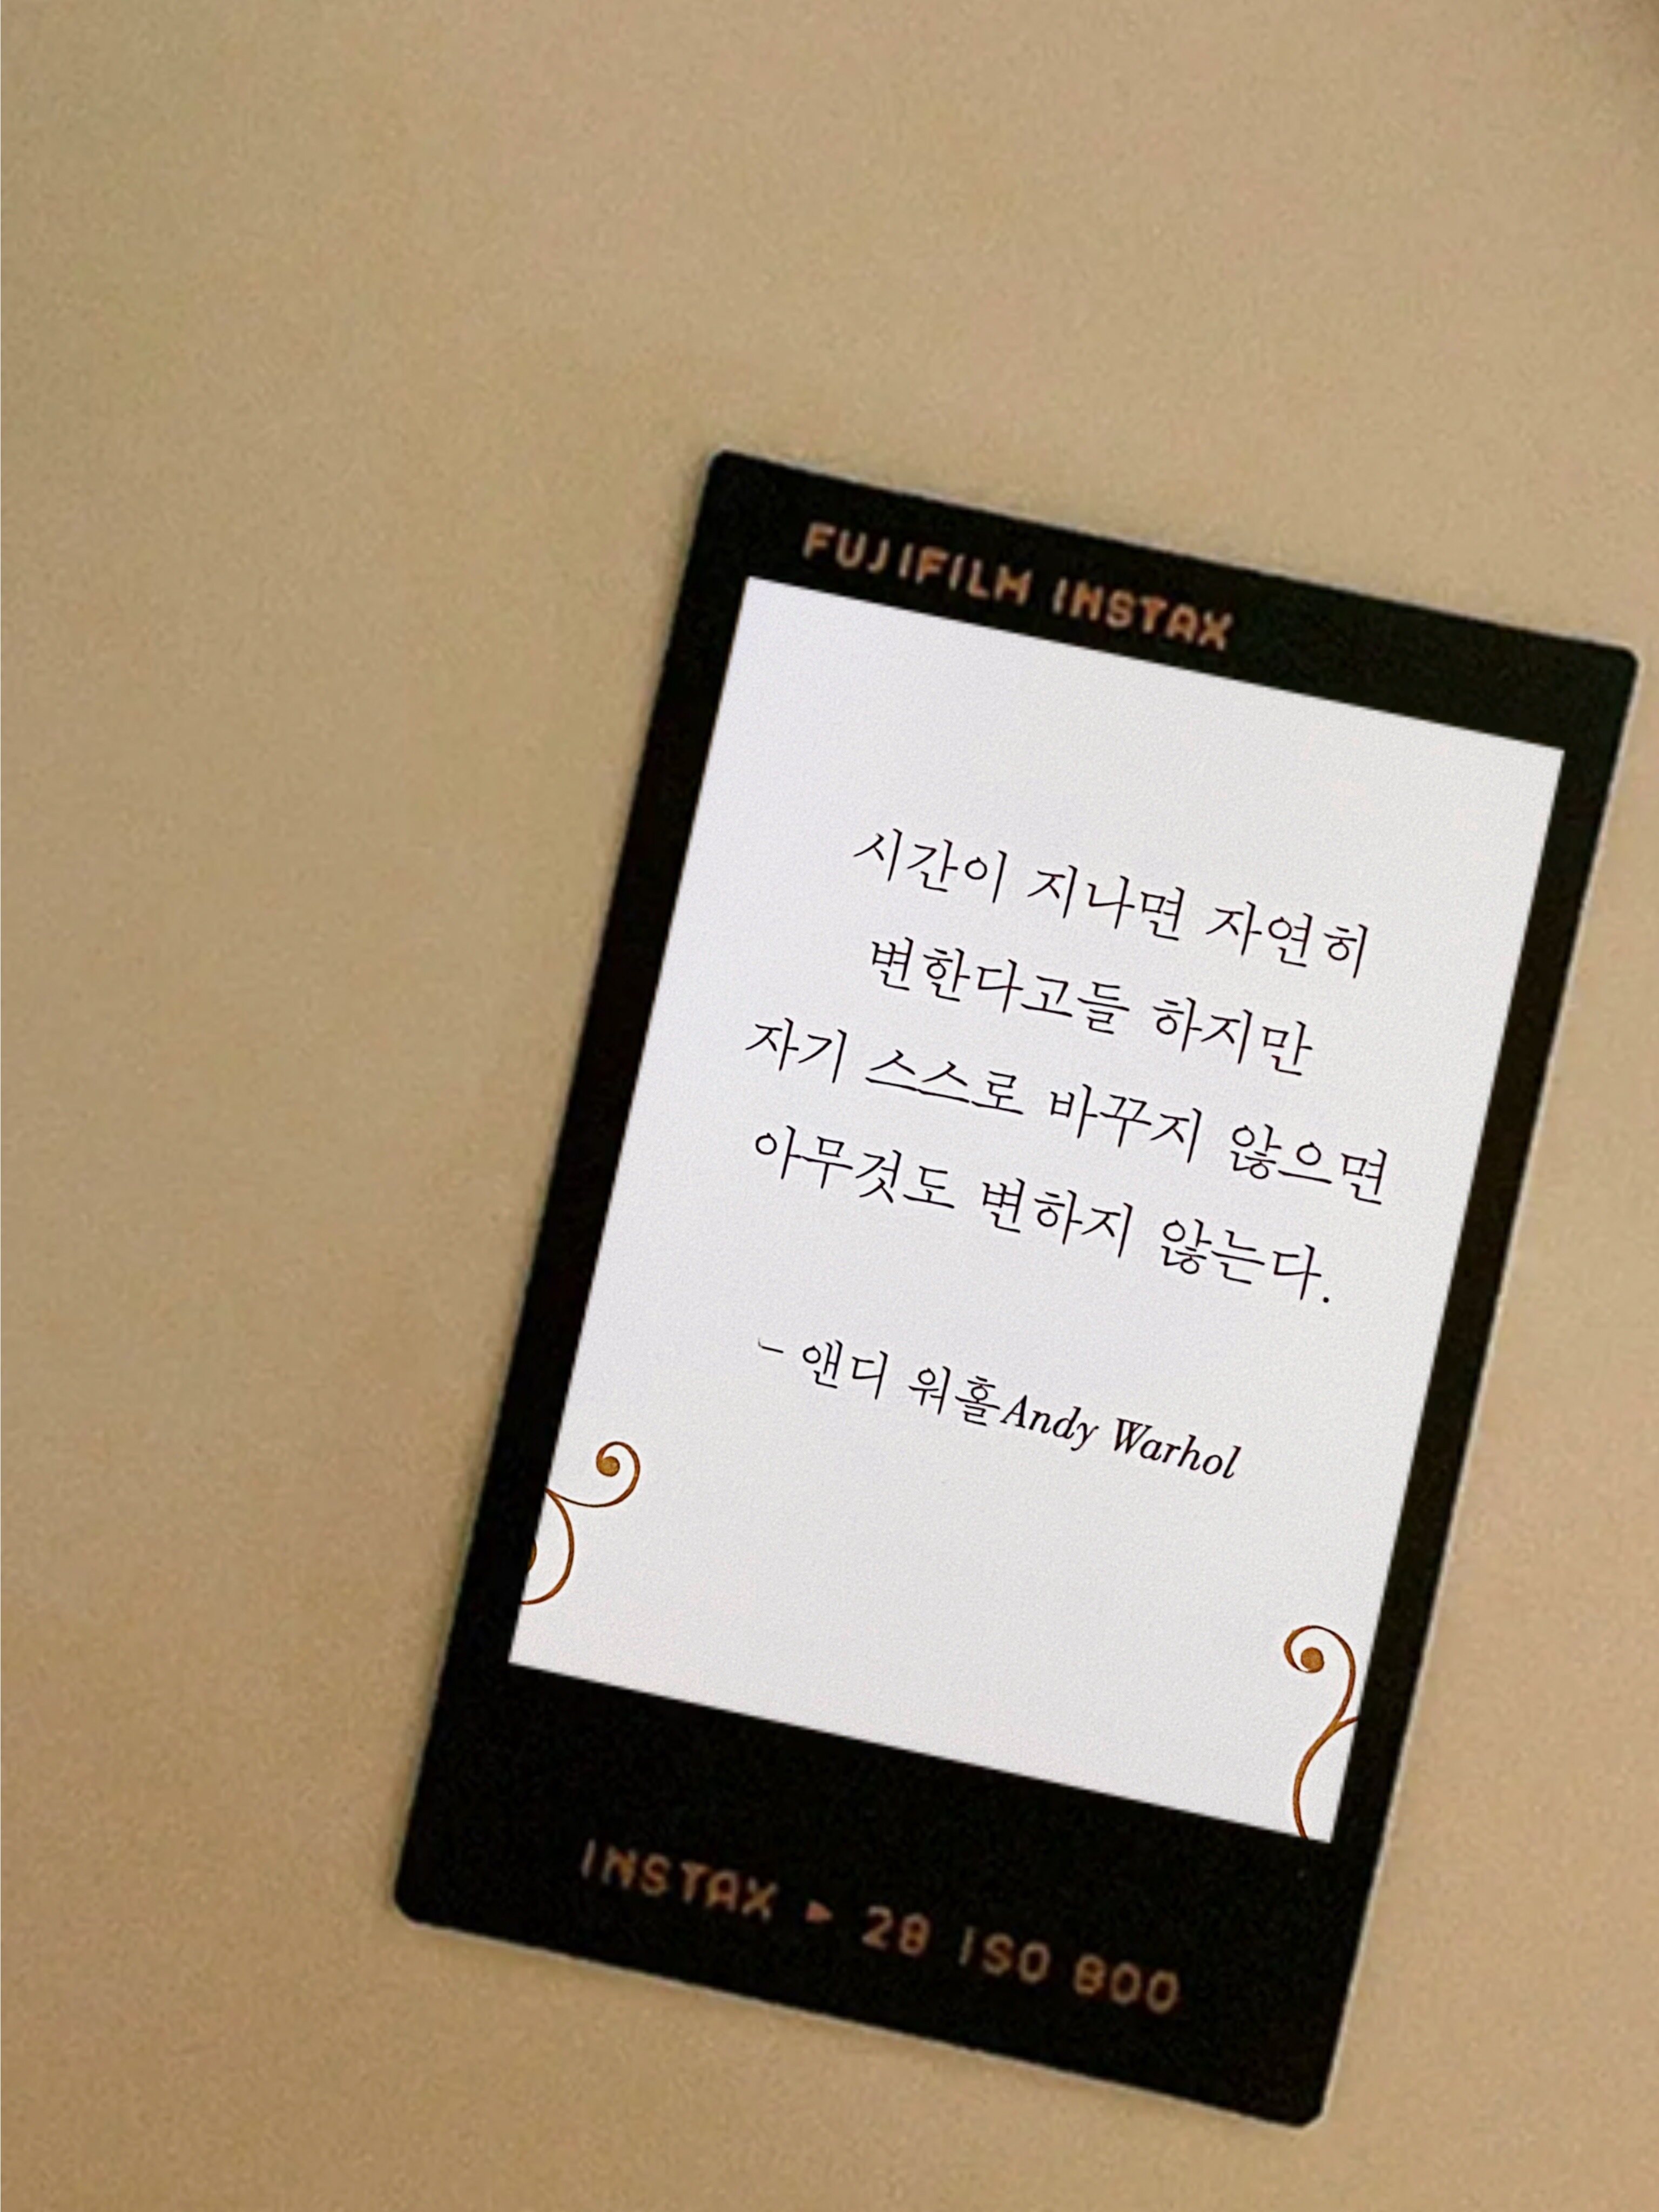 FUJIFILM INSTAX
시간이 지나면 자연히
변한다고들 하지만
자기 스스로 바꾸지 않으면
아무것도 변하지 않는다.
- 앤디 워홀Andy Warhol
INSTAX ▶ 28 ISO 800